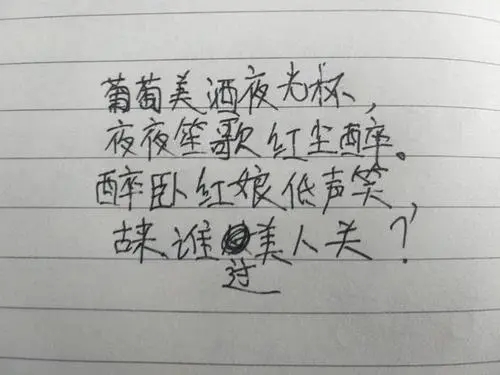 葡萄美酒夜光杯，
夜夜笙歌红尘醉。
醉卧红娘低声笑
古来谁过美人关？